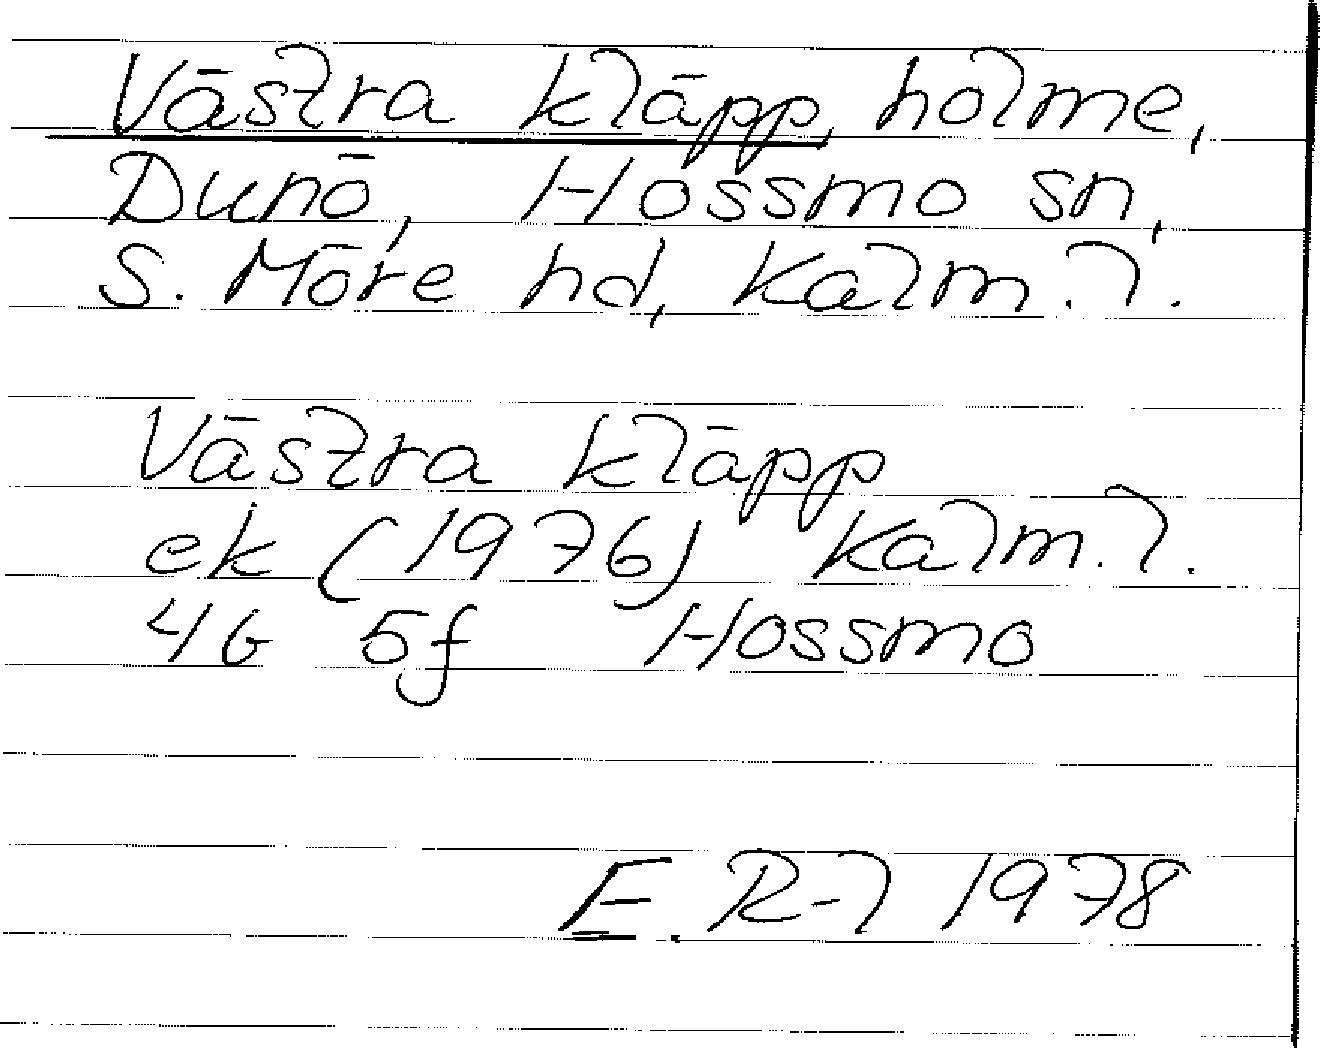 Västra kläpp, holme,
Dunö, Hossmo sn,
S. Möre hd, Kalm. l.
Västra kläpp
ek (1976) Kalm. l.
4G 5f Hossmo
E. R-l 1978